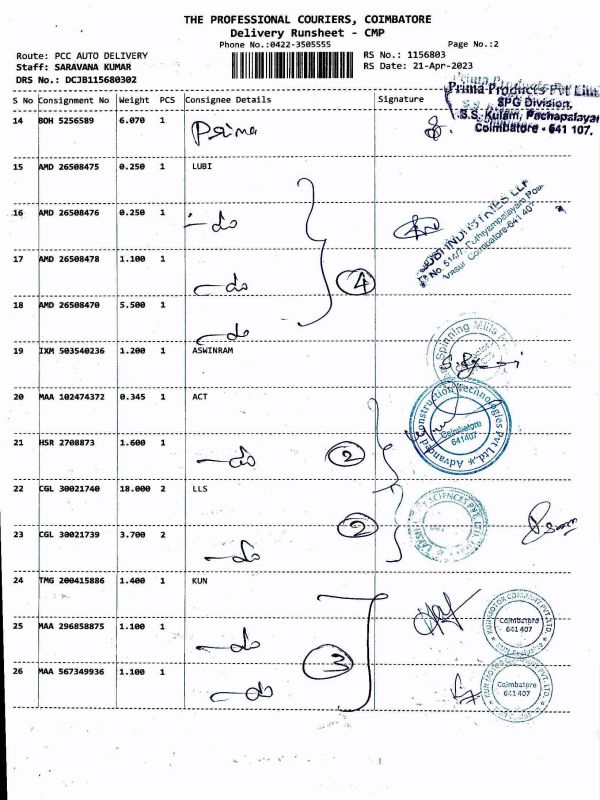 THE PROFESSIONAL COURIERS, COIMBATORE
Delivery Runsheet - CMP
Phone No.:0422-3505555 Page No.:2
Route: PCC AUTO DELIVERY RS No.: 1156803
Staff: SARAVANA KUMAR RS Date: 21-Apr-2023
DRS No.: DCJB115680302
Prima Products Pvt Limi
SPG Division,
S.S. Kulam, Pachapalayar
Coimbatore - 641 107.
S No Consignment No Weight PCS Consignee Details Signature
14 BOH 5256589 6.070 1 Prima
15 AMD 26508475 0.250 1 LUBI
16 AMD 26508476 0.250 1 -do
17 AMD 26508478 1.100 1 -do
4
18 AMD 26508470 5.500 1 -do
LUBI INDUSTRIES LLP
Coimbatore-641 407
19 IXM 503540236 1.200 1 ASWINRAM
Spinning Mills
20 MAA 102474372 0.345 1 ACT
Advanced Construction Technologies Pvt Ltd.
Coimbatore
641407
21 HSR 2708873 1.600 1 -do 2
22 CGL 30021740 18.000 2 LLS
2
23 CGL 30021739 3.700 2 -do
24 TMG 200415886 1.400 1 KUN
KUN MOTOR COMPANY PVT. LTD.
Coimbatore
641 407
25 MAA 296858875 1.100 1 -do
3
26 MAA 567349936 1.100 1 -do
KUN MOTOR COMPANY PVT. LTD.
Coimbatore
641 407